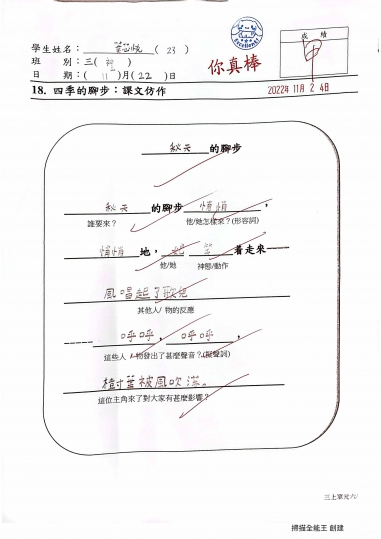 學生姓名： 葉芯悅 ( 23 )
班　　別：三( )
日　　期：( 11 )月( 22 )日
Excellent!
你真棒
成 績
甲
2022年 11月 2 4日
18. 四季的腳步：課文仿作
秋天 的腳步
秋天 的腳步 悄悄 ，
誰要來？ 他/她怎樣來？(形容詞)
悄悄 地， 她 笑 着走來──
他/她 神態/動作
風唱起了歌兒
其他人/ 物的反應
呼呼 ， 呼呼 ，
這些人/物發出了甚麼聲音？(擬聲詞)
樹葉被風吹落。
這位主角來了對大家有甚麼影響？
三上單元六/
掃描全能王 創建